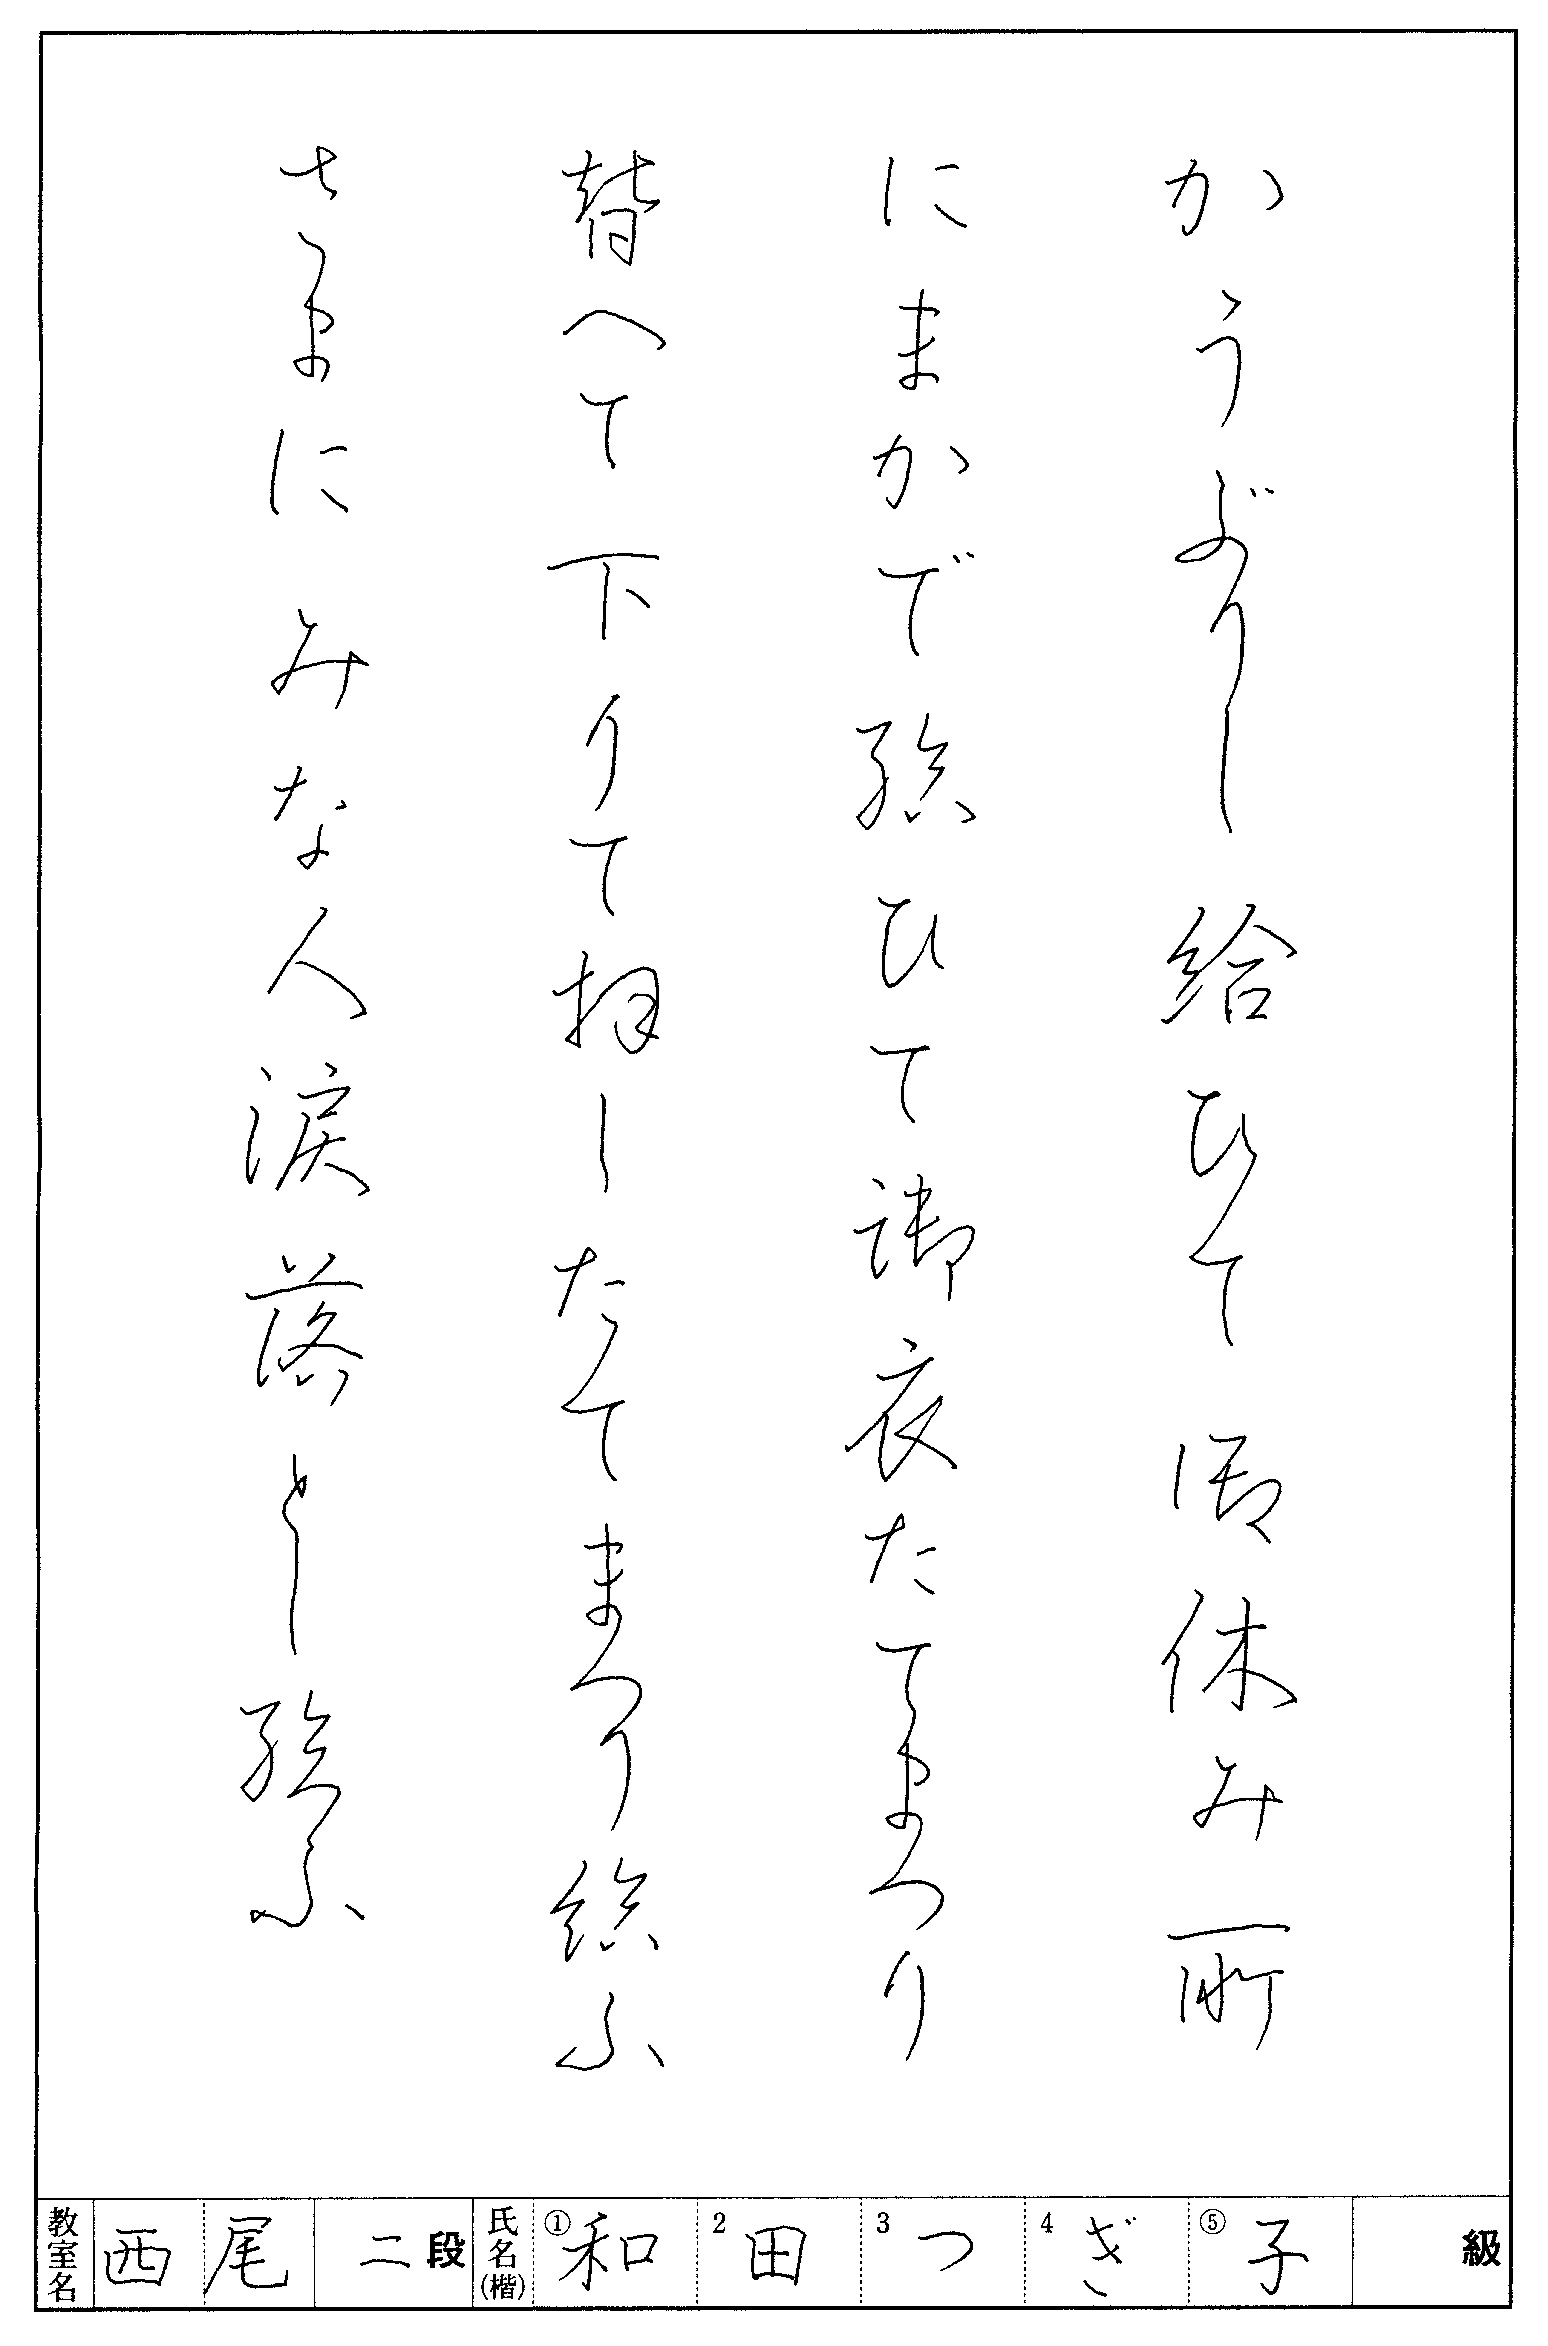 かうぶりし給ひて御休み所
にまかで給ひて御衣たてまつり
替へて下りて拝したてまつり給ふ
さまにみな人涙落とし給ふ
教室名 西尾 二段 氏名(楷) ①和 2田 3つ 4ぎ ⑤子 級